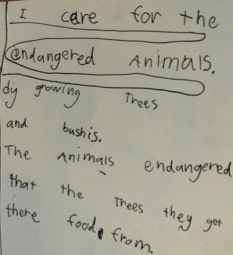 I care for the
endangered Animals.
dy growing Trees
and bushis.
The Animals endangered
that the Trees they get
there food from.